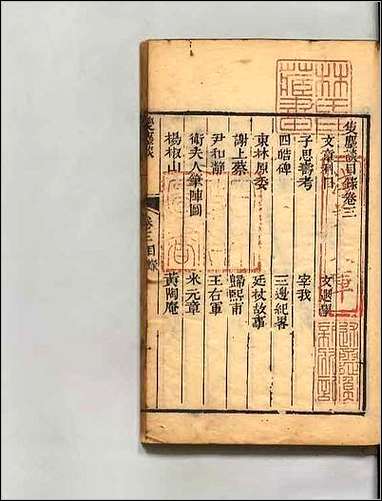 隻塵談目錄卷三
文章利目 文選學
子思壽考 宰我
四皓碑 三邊紀畧
東林原委 廷杖故事
謝上蔡 歸熙甫
尹和靜 王右軍
衛夫人筆陣圖 米元章
楊椒山 黃陶庵
隻塵談 卷三目錄